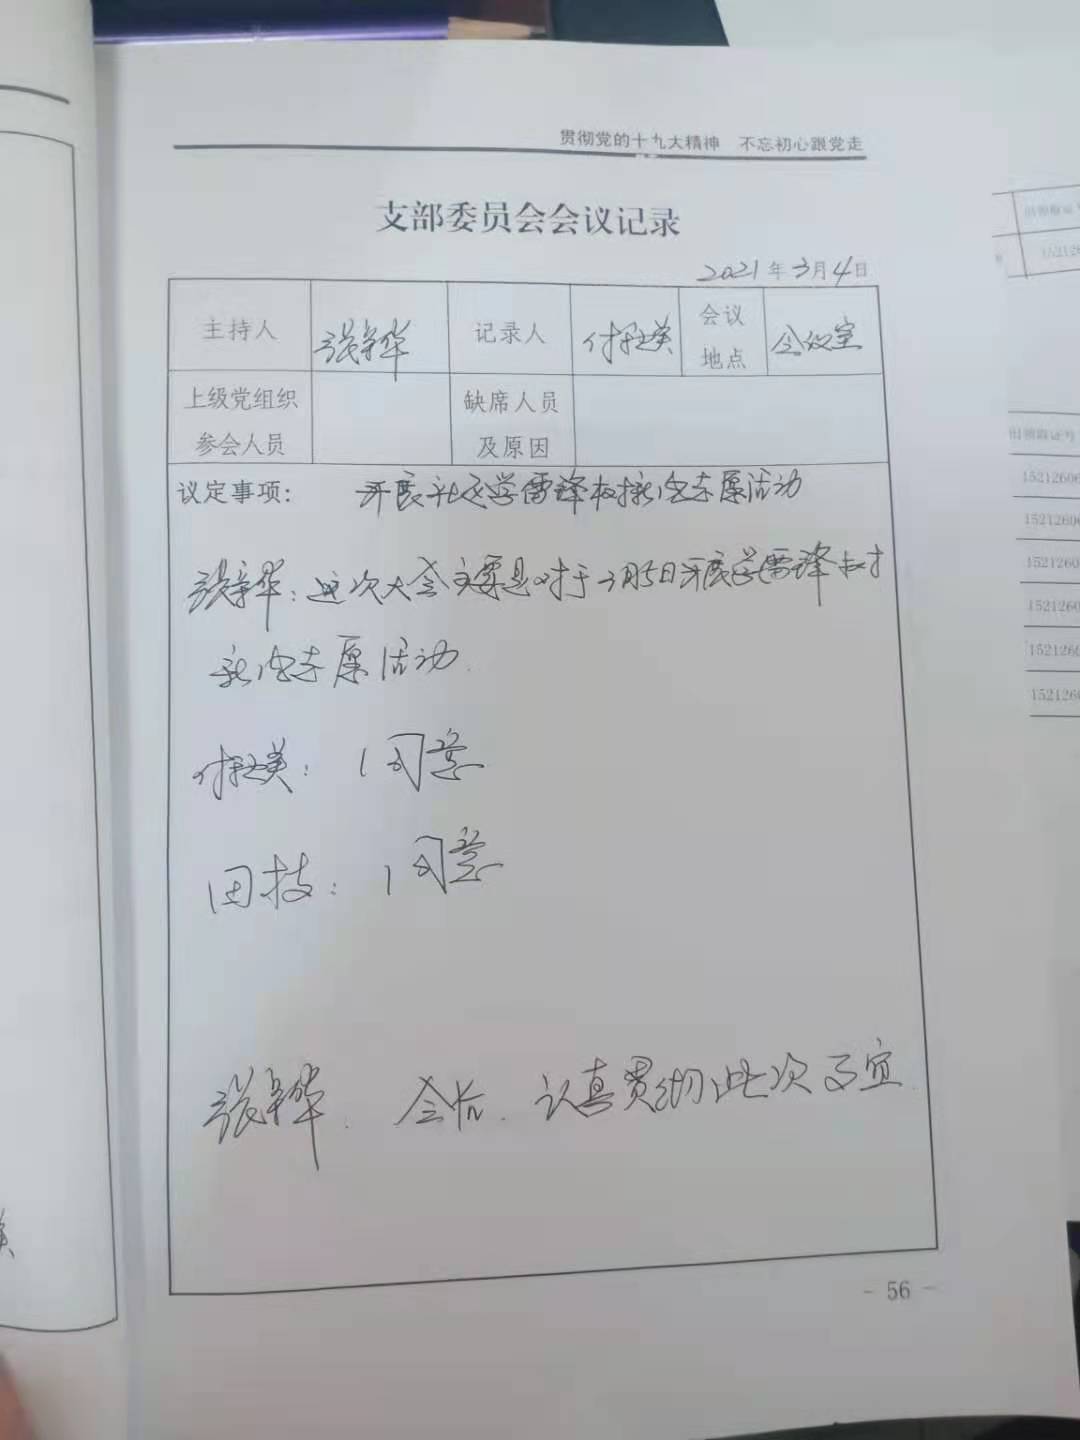 贯彻党的十九大精神 不忘初心跟党走
支部委员会会议记录
2021年3月4日
主持人 张新华 记录人 会议地点 会议室
上级党组织参会人员 缺席人员及原因
议定事项: 开展 学雷锋 志愿活动
张新华:这次大会主要是对于3月5日开展学雷锋
志愿活动.
美: 同意
田技: 同意
张新华. 会后.认真贯彻此次事宜.
- 56 -
出领取证号
15212606
15212606
15212606
15212606
15212606
15212606